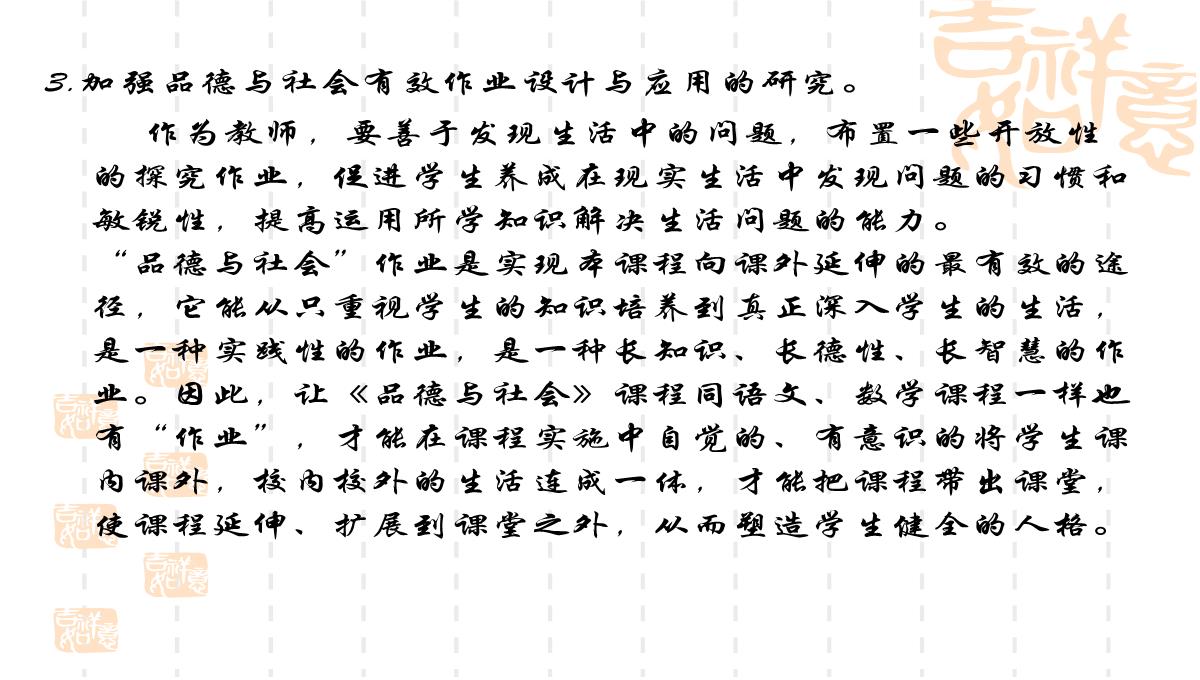 3.加强品德与社会有效作业设计与应用的研究。
作为教师，要善于发现生活中的问题，布置一些开放性
的探究作业，促进学生养成在现实生活中发现问题的习惯和
敏锐性，提高运用所学知识解决生活问题的能力。
“品德与社会”作业是实现本课程向课外延伸的最有效的途
径，它能从只重视学生的知识培养到真正深入学生的生活，
是一种实践性的作业，是一种长知识、长德性、长智慧的作
业。因此，让《品德与社会》课程同语文、数学课程一样也
有“作业”，才能在课程实施中自觉的、有意识的将学生课
内课外，校内校外的生活连成一体，才能把课程带出课堂，
使课程延伸、扩展到课堂之外，从而塑造学生健全的人格。
吉祥如意
吉祥如意
吉祥如意
吉祥如意
吉祥如意
吉祥如意
吉祥如意